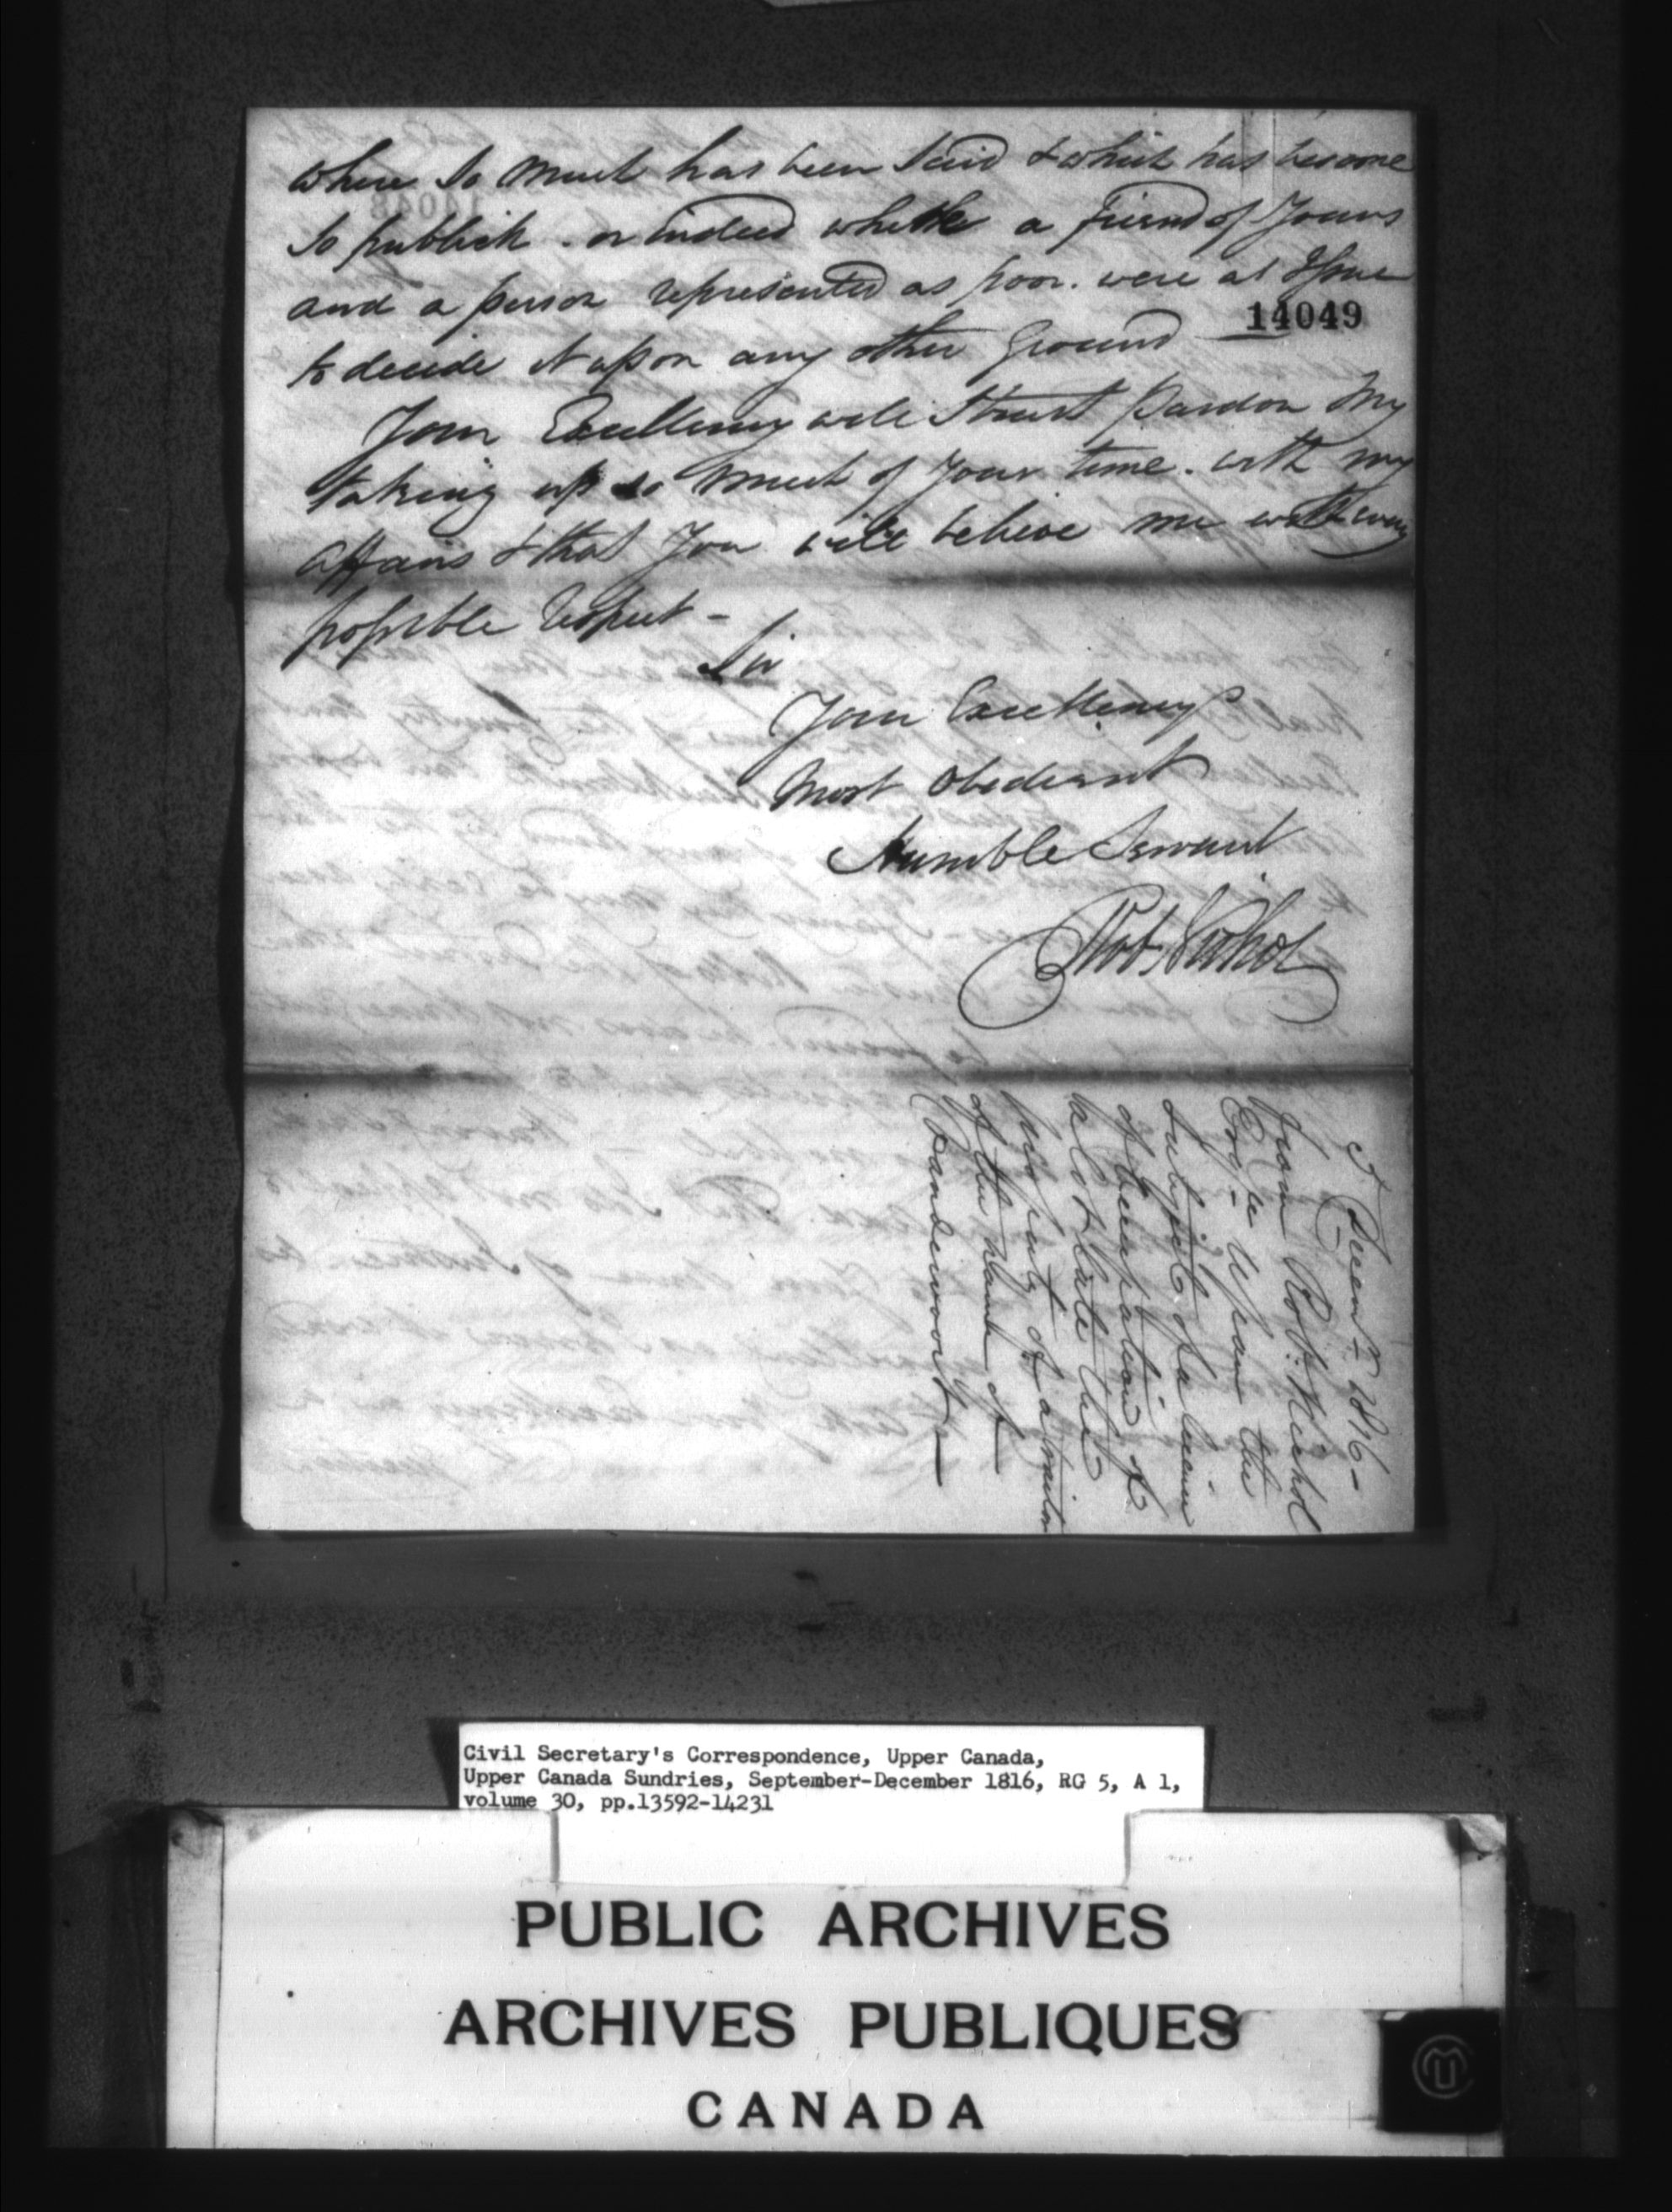 where So Much has been Said & which has become
So publick. or indeed whether a friend of Yours
and a person represented as poor. were at Issue
14049
to decide it upon any other Ground
Your Excellency will I trust Pardon My
taking up so Much of Your time. with my
affairs & that You will believe me with every
possible Respect -
Sir
Your Excellency's
Most Obedient
Humble Servant
Robt. Nichol
Decemr. 1816 -
from Robt. Nichol
Esqre. upon the
Subject of a
of
the
property of a traitor
of the name of
Vanderworts -
Civil Secretary's Correspondence, Upper Canada,
Upper Canada Sundries, September-December 1816, RG 5, A 1,
volume 30, pp.13592-14231
PUBLIC ARCHIVES
ARCHIVES PUBLIQUES
CANADA